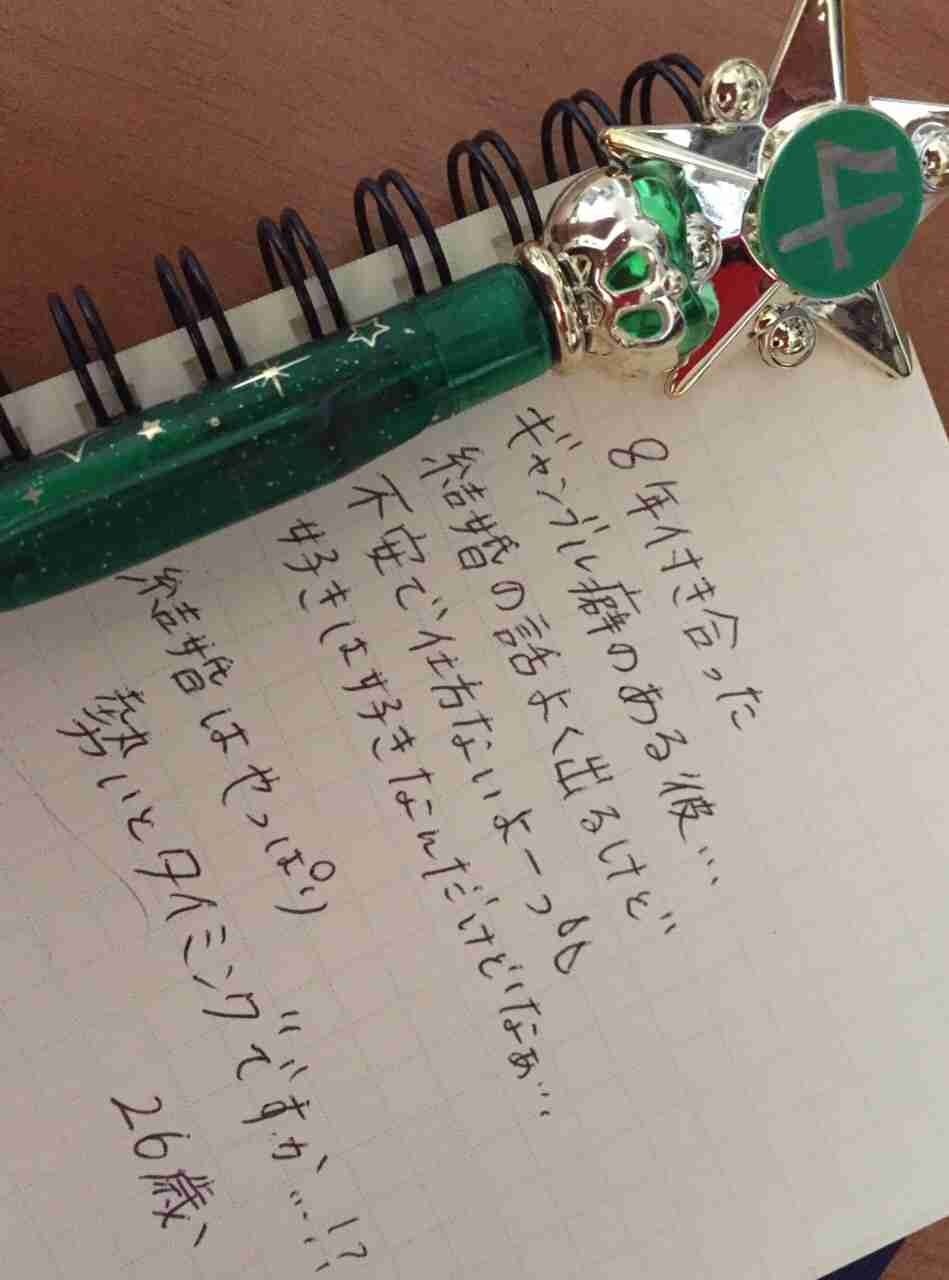 8年付き合った
ギャンブル癖のある彼…
結婚の話よく出るけど
不安で仕方ないよーっ
好きは好きなんだけどなぁ…
結婚はやっぱり
勢いとタイミングですか…!?
26歳、
4